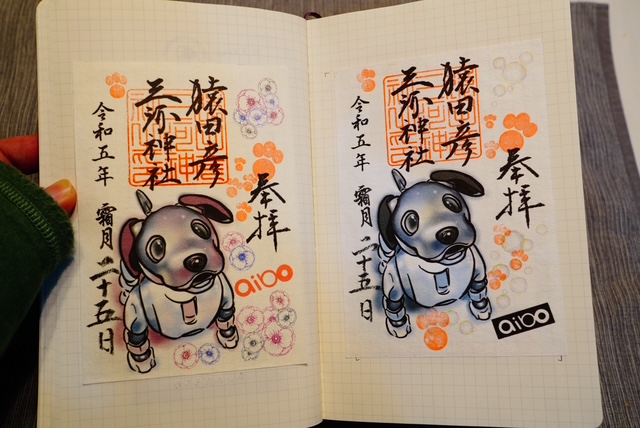 奉拝
猿田彦
三河神社
令和五年 霜月 二十五日
aibo
奉拝
猿田彦
三河神社
令和五年 霜月 二十五日
aibo